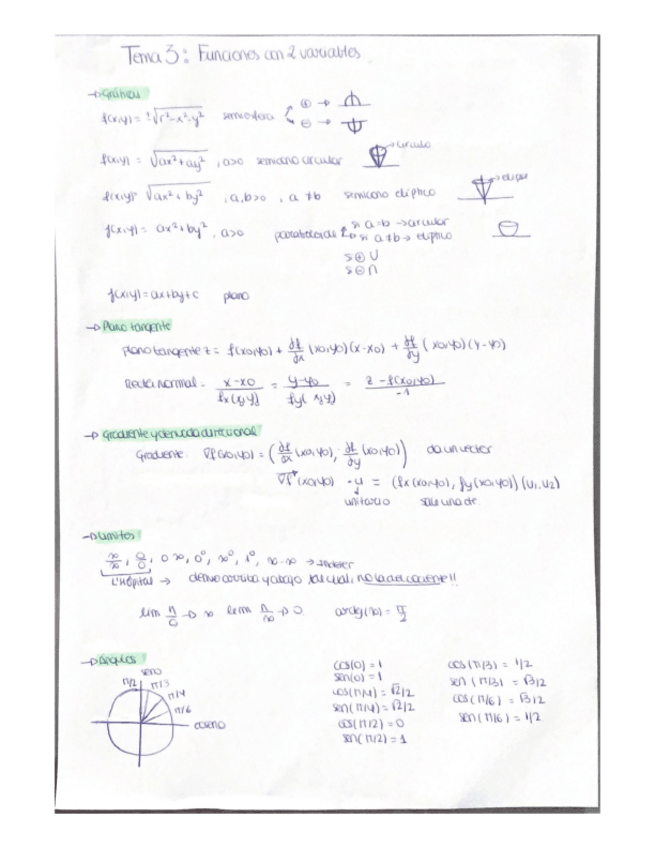 Tema 3: Funciones con 2 variables
→ Gráficas
f(x,y) = ±√r²-x²-y² semiesfera ⊕ →
⊖ →
f(x,y) = √ax²+ay² , a>0 semicono circular → círculo
f(x,y)= √ax²+by² , a,b>0 , a≠b semicono elíptico → elipse
f(x,y) = ax²+by² , a>0 paraboloide si a=b → circular
si a≠b → elíptico
si ⊕ ∪
si ⊖ ∩
f(x,y)=ax+by+c plano
→ Plano tangente
Plano tangente z = f(x0,y0) + df/dx (x0,y0)(x-x0) + df/dy (x0,y0)(y-y0)
Recta normal = x-x0/fx(x,y) = y-y0/fy(x,y) = z-f(x0,y0)/-1
→ Gradiente y derivada direccional
Gradiente ∇f(x0,y0) = (df/dx (x0,y0), df/dy (x0,y0)) da un vector
∇f(x0,y0) · u = (fx(x0,y0), fy(x0,y0))(u1,u2)
unitario sale uno de
→ Límites
∞/∞, 0/0, 0·∞, 0⁰, ∞⁰, 1⁰, ∞-∞ → indeter
L'Hôpital → derivo arriba y abajo tal cual, no la del cociente!!
lim n/0 → ∞ lim n/∞ → 0 arctg(∞) = π/2
→ Ángulos
seno
π/2
π/3
π/4
π/6
coseno
cos(0) = 1
sen(0) = 1
cos(π/4) = √2/2
sen(π/4) = √2/2
cos(π/2) = 0
sen(π/2) = 1
cos(π/3) = 1/2
sen(π/3) = √3/2
cos(π/6) = √3/2
sen(π/6) = 1/2